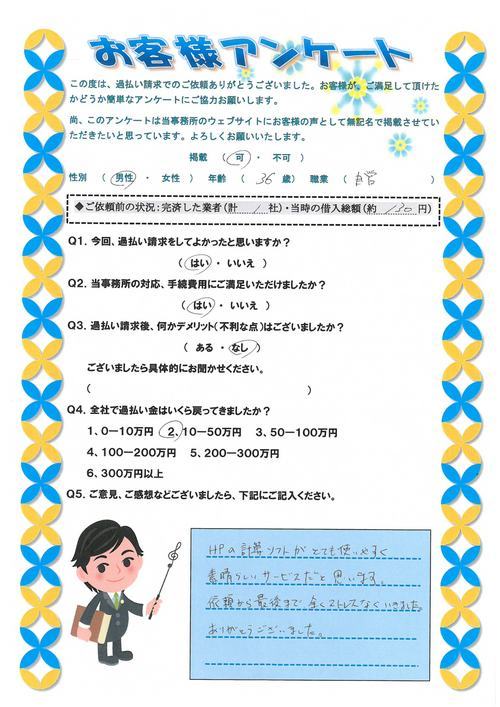 お客様アンケート
この度は、過払い請求でのご依頼ありがとうございました。お客様が、ご満足して頂けた
かどうか簡単なアンケートにご協力お願いします。
尚、このアンケートは当事務所のウェブサイトにお客様の声として無記名で掲載させてい
ただきたいと思っています。よろしくお願いいたします。
掲載 （ 可 ・ 不可 ）
性別 （ 男性 ・ 女性 ） 年齢 （ 36 歳） 職業 （ 自営 ）
◆ご依頼前の状況：完済した業者（計 1 社）・当時の借入総額（約 130 円）
Q1. 今回、過払い請求をしてよかったと思いますか？
（ はい ・ いいえ ）
Q2. 当事務所の対応、手続費用にご満足いただけましたか？
（ はい ・ いいえ ）
Q3. 過払い請求後、何かデメリット（不利な点）はございましたか？
（ ある ・ なし ）
ございましたら具体的にお聞かせください。
（ ）
Q4. 全社で過払い金はいくら戻ってきましたか？
1、0－10万円 2、10－50万円 3、50－100万円
4、100－200万円 5、200－300万円
6、300万円以上
Q5. ご意見、ご感想などございましたら、下記にご記入ください。
HPの計算ソフトがとても使いやすく
素晴らしいサービスだと思います。
依頼から最後まで全くストレスなくいきました。
ありがとうございました。